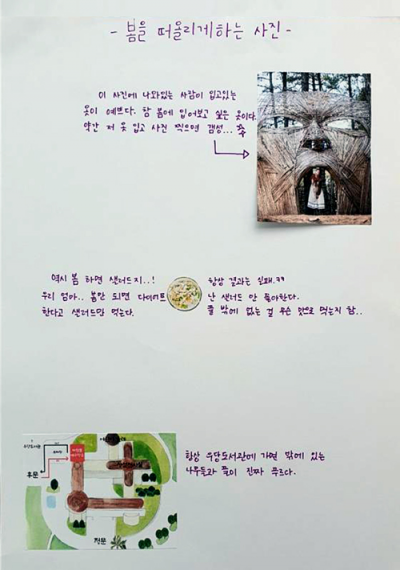 - 봄을 떠올리게하는 사진 -
이 사진에 나와있는 사람이 입고있는
옷이 예쁘다. 참 봄에 입어보고 싶은 옷이다.
약간 저 옷 입고 사진 찍으면 갬성...
역시 봄 하면 샐러드지..!
우리 엄마.. 봄만 되면 다이어트
한다고 샐러드만 먹는다.
항상 결과는 실패.ㅋㅋ
난 샐러드 안 좋아한다.
풀 밖에 없는 걸 무슨 맛으로 먹는지 참..
후문
정문
항상 우당도서관에 가면 밖에 있는
나무들과 풀이 진짜 푸르다.